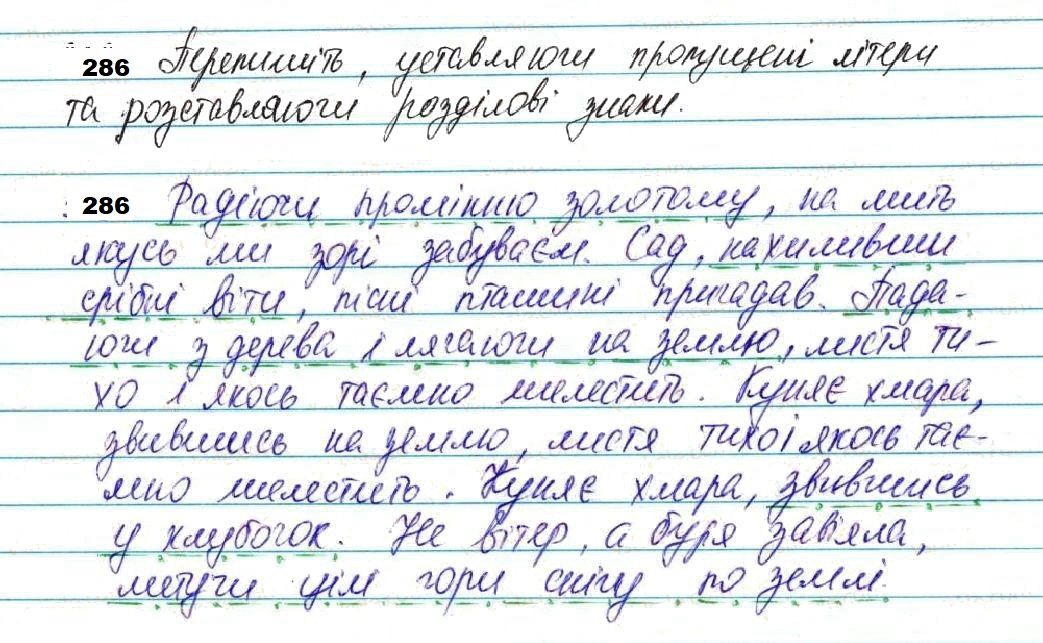 286 Перепишіть, уставляючи пропущені літери
та розставляючи розділові знаки.
286 Радіючи промінню золотому, на мить
якусь ми зорі забуваєм. Сад, нахиливши
срібні віти, пісні пташині пригадав. Пада-
ючи з дерева і лягаючи на землю, листя ти-
хо і якось таємно шелестить. Куняє хмара,
звившись на землю, листя тихо і якось тає-
мно шелестить. Куняє хмара, звившись
у клубочок. Не вітер, а буря завіяла,
метучи цілі гори снігу по землі.